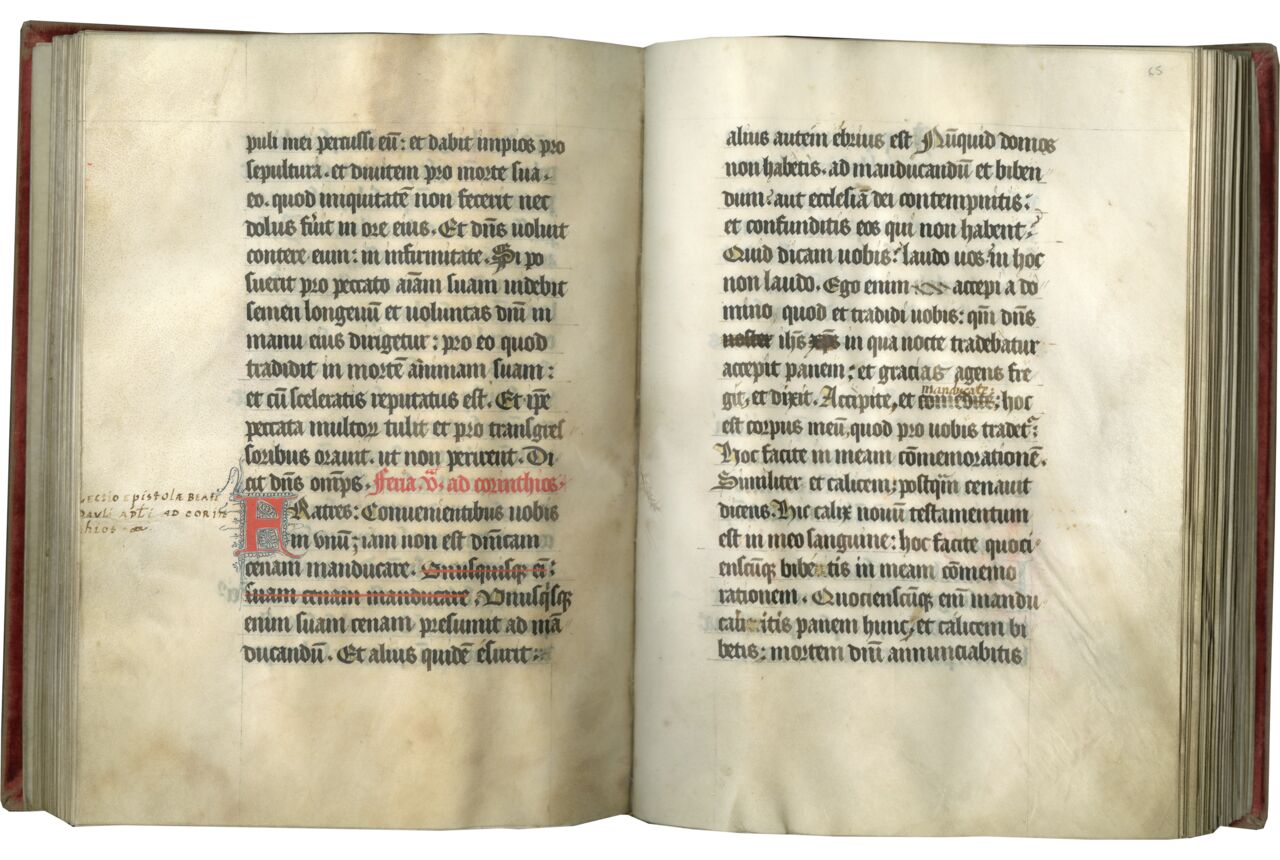 puli mei percussi eū: et dabit impios pro
sepultura. et diuitem pro morte sua.
eo. quod iniquitatē non fecerit nec
dolus fu̾it in ore eius. Et dn̄s uoluit
contere eum: in infirmitate. Si po
suerit pro peccato aīam suam uidebit
semen longeuū et voluntas dn̄i in
manu eius dirigetur: pro eo quod
tradidit in mortē animam suam:
et cū sceleratis reputatus est. Et ip̄e
peccata multoꝝ tulit et pro transgres
soribus orauit. ut non perirent. Di
cit dn̄s omp̄s. Feria .v.ͣ ad corinthios.
Lectio epistolæ beati
Pauli apl̄i ad corin
thios
FRatres: Conuenientibus uobis
in vnū; iam non est dn̄icam
cenam manducare. Vnusquisqꝫ ei:
suam cenam manducare. Vnusq̇sqꝫ
enim suam cenam presumit ad mā
ducandū. Et alius quidē esurit:
65
alius autem ebrius est Nūquid domos
non habetis. ad manducandū et biben
dum: aut ecclesiā dei contempnitis:
et confunditis eos qui non habent?
Quid dicam uobis? laudo uos in hoc
non laudo. Ego enim accepi a do
mino quod et tradidi uobis: qm̄ dn̄s
noster ih̄s xp̄s in qua nocte tradebatur
accepit panem: et gracias agens fre
manducate:
git, et dixit. Accipite, et comedite; hoc
est corpus meū, quod pro uobis tradet᷑:
Hoc facite in meam cōmemorationē.
Similiter et calicem: postq̄m cenauit
dicens. Hic calix nouū testamentum
est in meo sanguine: hoc facite quoci
enscūqꝫ bibetis in meam cōmemo
rationem. Quocienscūqꝫ eni̅ mandu
cabitis panem hunc, et calicem bi
betis: mortem dn̄i annunciabitis